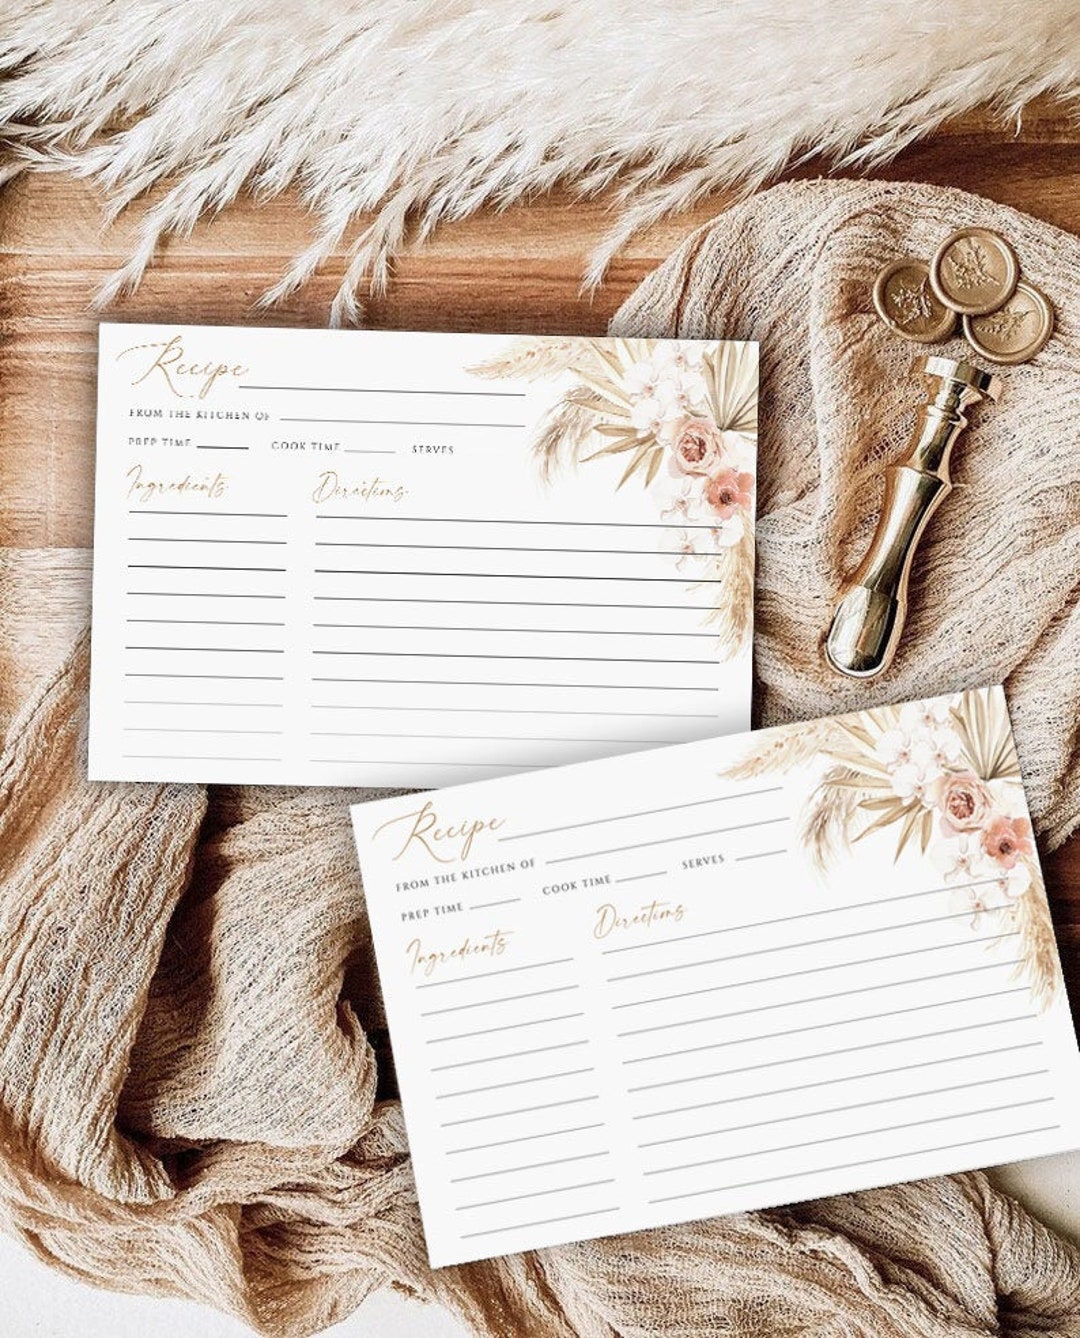 Recipe
FROM THE KITCHEN OF
PREP TIME COOK TIME SERVES
Ingredients Directions
Recipe
FROM THE KITCHEN OF
PREP TIME COOK TIME SERVES
Ingredients Directions